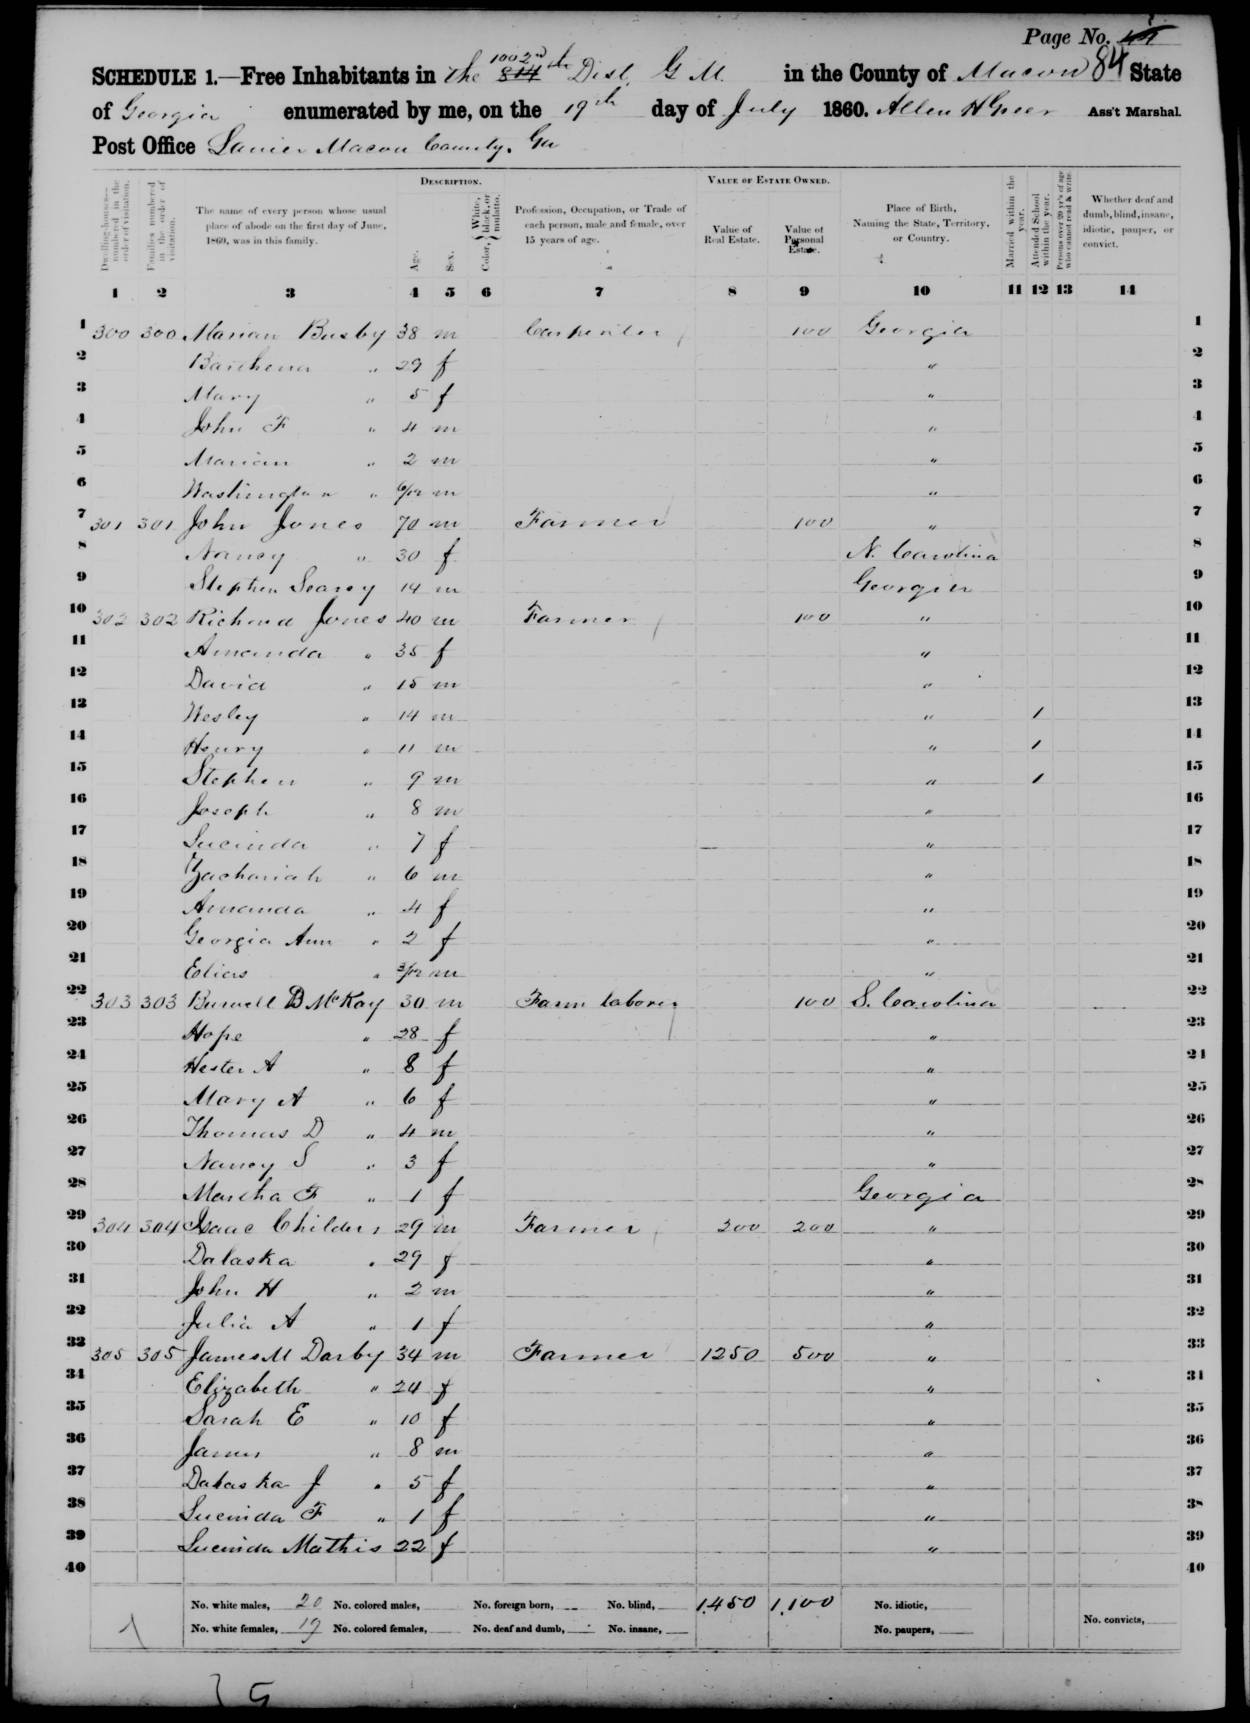 Page No. 84
SCHEDULE 1.—Free Inhabitants in The 1002nd 814th Dist G M in the County of Macon State
of Georgia enumerated by me, on the 19th day of July 1860. Allen H Greer Ass't Marshal.
Post Office Lanier Macon County, Ga
DESCRIPTION. VALUE OF ESTATE OWNED.
Dwelling-houses—numbered in the order of visitation.
Families numbered in the order of visitation.
The name of every person whose usual place of abode on the first day of June, 1860, was in this family.
Age.
Sex.
Color, { White, black, or mulatto.
Profession, Occupation, or Trade of each person, male and female, over 15 years of age.
Value of Real Estate.
Value of Personal Estate.
Place of Birth, Naming the State, Territory, or Country.
Married within the year.
Attended School within the year.
Persons over 20 y'rs of age who cannot read & write.
Whether deaf and dumb, blind, insane, idiotic, pauper, or convict.
1 2 3 4 5 6 7 8 9 10 11 12 13 14
1 300 300 Marian Busby 38 m Carpenter 100 Georgia 1
2 " 29 f " 2
3 Mary " 5 f " 3
4 John F " 4 m " 4
5 Marian " 2 m " 5
6 Washington " 6/12 m " 6
7 301 301 John Jones 70 m Farmer 100 " 7
8 Nancy " 30 f N. Carolina 8
9 Stephen Searcy 14 m Georgia 9
10 302 302 Richard Jones 40 m Farmer 100 " 10
11 Amanda " 35 f " 11
12 David " 15 m " 12
13 Wesley " 14 m " 1 13
14 Henry " 11 m " 1 14
15 Stephen " 9 m " 1 15
16 Joseph " 8 m " 16
17 Lucinda " 7 f " 17
18 Zachariah " 6 m " 18
19 Amanda " 4 f " 19
20 Georgia Ann " 2 f " 20
21 Elias " 3/12 m " 21
22 303 303 Burwell B McKay 30 m Farm laborer 100 S. Carolina 22
23 Hope " 28 f " 23
24 Hester A " 8 f " 24
25 Mary A " 6 f " 25
26 Thomas D " 4 m " 26
27 Nancy S " 3 f " 27
28 Martha F " 1 f Georgia 28
29 304 304 Isaac Childers 29 m Farmer 200 200 " 29
30 Dalaska " 29 f " 30
31 John H " 2 m " 31
32 Julia A " 1 f " 32
33 305 305 James M Darby 34 m Farmer 1250 500 " 33
34 Elizabeth " 24 f " 34
35 Sarah E " 10 f " 35
36 James " 8 m " 36
37 Dalaska J " 5 f " 37
38 Lucinda F " 1 f " 38
39 Lucinda Mathis 22 f " 39
40 40
No. white males, 20 No. colored males, No. foreign born, No. blind, 1,450 1,100 No. idiotic,
No. white females, 19 No. colored females, No. deaf and dumb, No. insane, No. paupers, No. convicts,